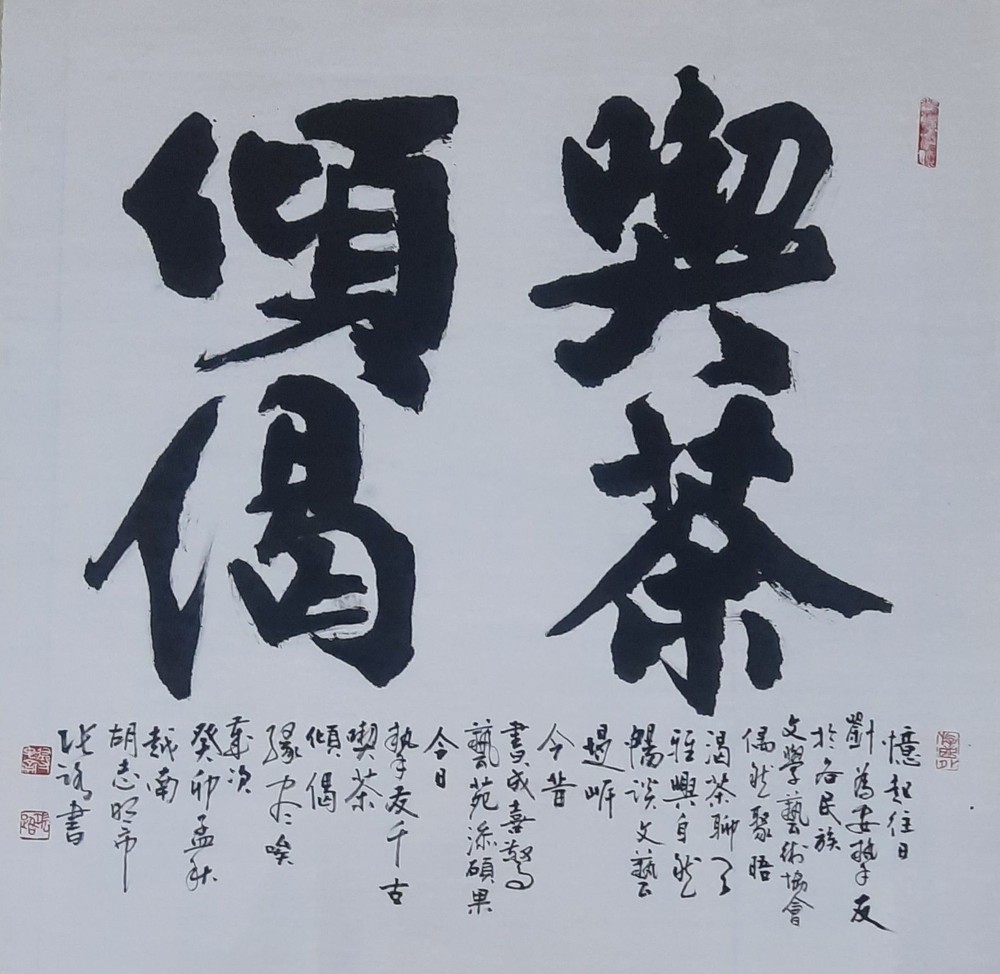 喫茶
傾偈
憶起往日
劉為安摯友
於各民族
文學藝術協會
偶然聚晤
渴茶聊了
雅興自然
暢談文藝
今昔
書成喜驚
藝苑添碩果
今日
摯友千古
喫茶
傾偈
緣
歲次
癸卯孟秋
越南
胡志明市
張路書